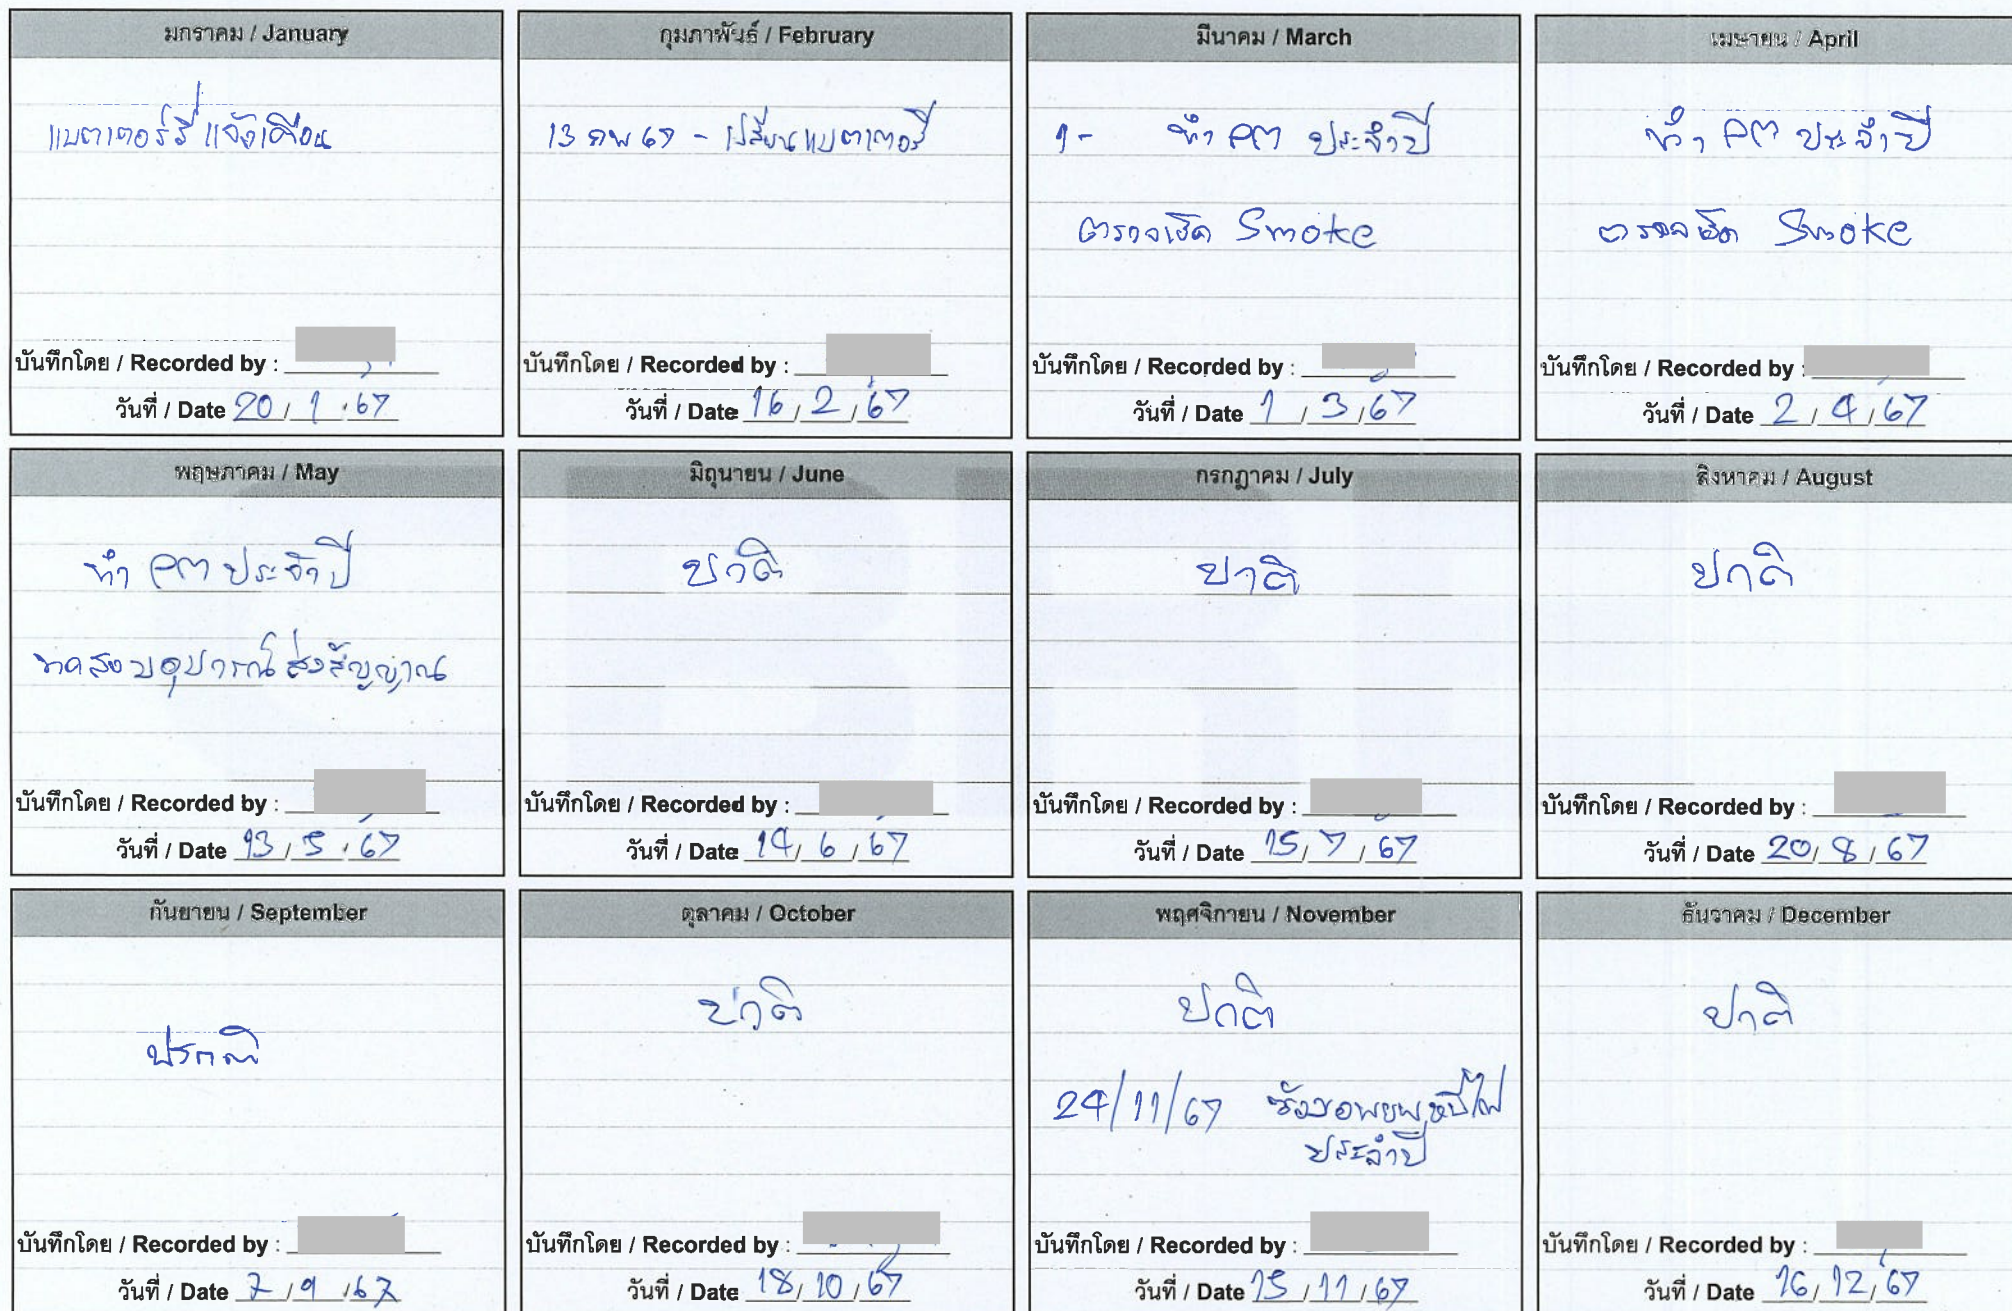 มกราคม / January
แบตเตอร์รี่ แจ้งเตือน
บันทึกโดย / Recorded by :
วันที่ / Date 20 / 1 / 67
กุมภาพันธ์ / February
13 กพ 67 - เปลี่ยนแบตเตอรี่
บันทึกโดย / Recorded by :
วันที่ / Date 16 / 2 / 67
มีนาคม / March
1- ทำ PM ประจำปี
ตรวจเช็ค Smoke
บันทึกโดย / Recorded by :
วันที่ / Date 1 / 3 / 67
เมษายน / April
ทำ PM ประจำปี
ตรวจเช็ค Smoke
บันทึกโดย / Recorded by :
วันที่ / Date 2 / 4 / 67
พฤษภาคม / May
ทำ PM ประจำปี
ทดสอบอุปกรณ์ส่งสัญญาณ
บันทึกโดย / Recorded by :
วันที่ / Date 13 / 5 / 67
มิถุนายน / June
ปกติ
บันทึกโดย / Recorded by :
วันที่ / Date 14 / 6 / 67
กรกฎาคม / July
ปกติ
บันทึกโดย / Recorded by :
วันที่ / Date 15 / 7 / 67
สิงหาคม / August
ปกติ
บันทึกโดย / Recorded by :
วันที่ / Date 20 / 8 / 67
กันยายน / September
ปรกติ
บันทึกโดย / Recorded by :
วันที่ / Date 7 / 9 / 67
ตุลาคม / October
ปกติ
บันทึกโดย / Recorded by :
วันที่ / Date 18 / 10 / 67
พฤศจิกายน / November
ปกติ
24/11/67 ซ้อมอพยพหนีไฟ
ประจำปี
บันทึกโดย / Recorded by :
วันที่ / Date 15 / 11 / 67
ธันวาคม / December
ปกติ
บันทึกโดย / Recorded by :
วันที่ / Date 16 / 12 / 67